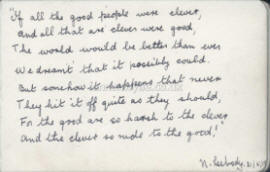 "If all the good people were clever,
And all that are clever were good,
The world would be better than ever
We dreamt that it possibly could.
But somehow it happens that never
They hit it off quite as they should,
For the good are so harsh to the clever
And the clever so rude to the good!"
N.